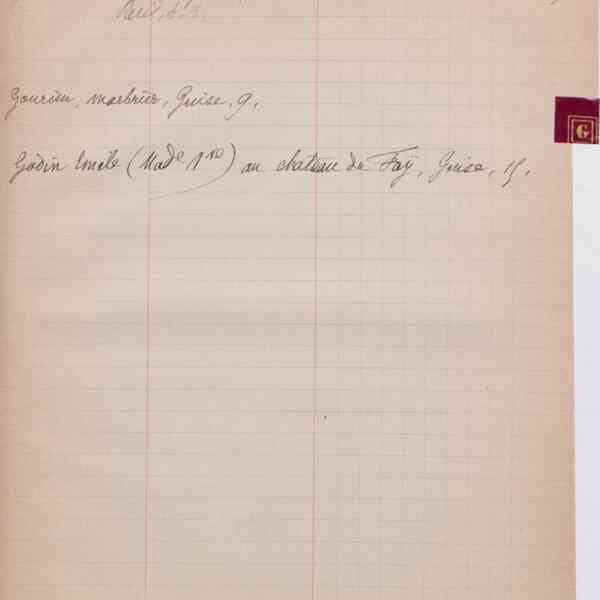 Paris, 6.3.
Gourieu, marbrier, Guise, 9.
G
Godin Emile (Made Vve) au chateau du Faÿ, Guise, 15.